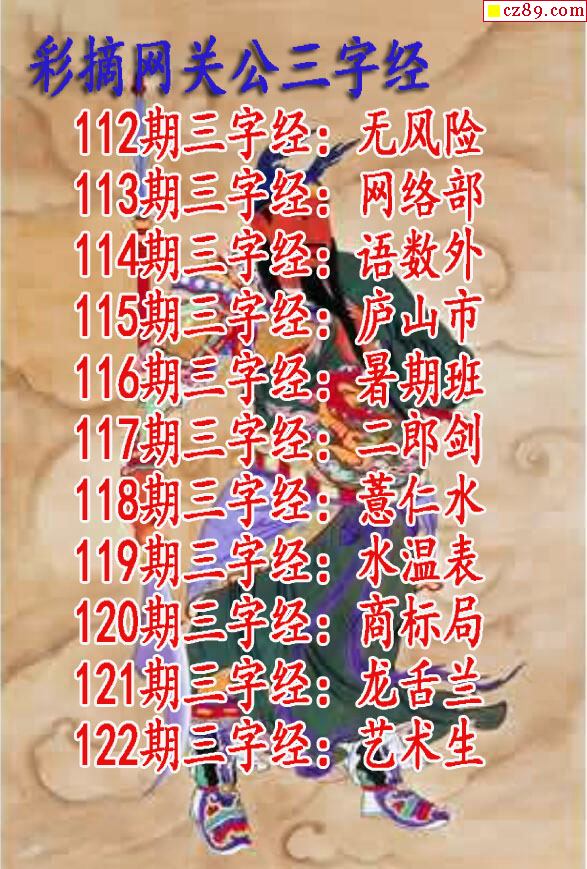 cz89.com
彩摘网关公三字经
112期三字经：无风险
113期三字经：网络部
114期三字经：语数外
115期三字经：庐山市
116期三字经：暑期班
117期三字经：二郎剑
118期三字经：薏仁水
119期三字经：水温表
120期三字经：商标局
121期三字经：龙舌兰
122期三字经：艺术生